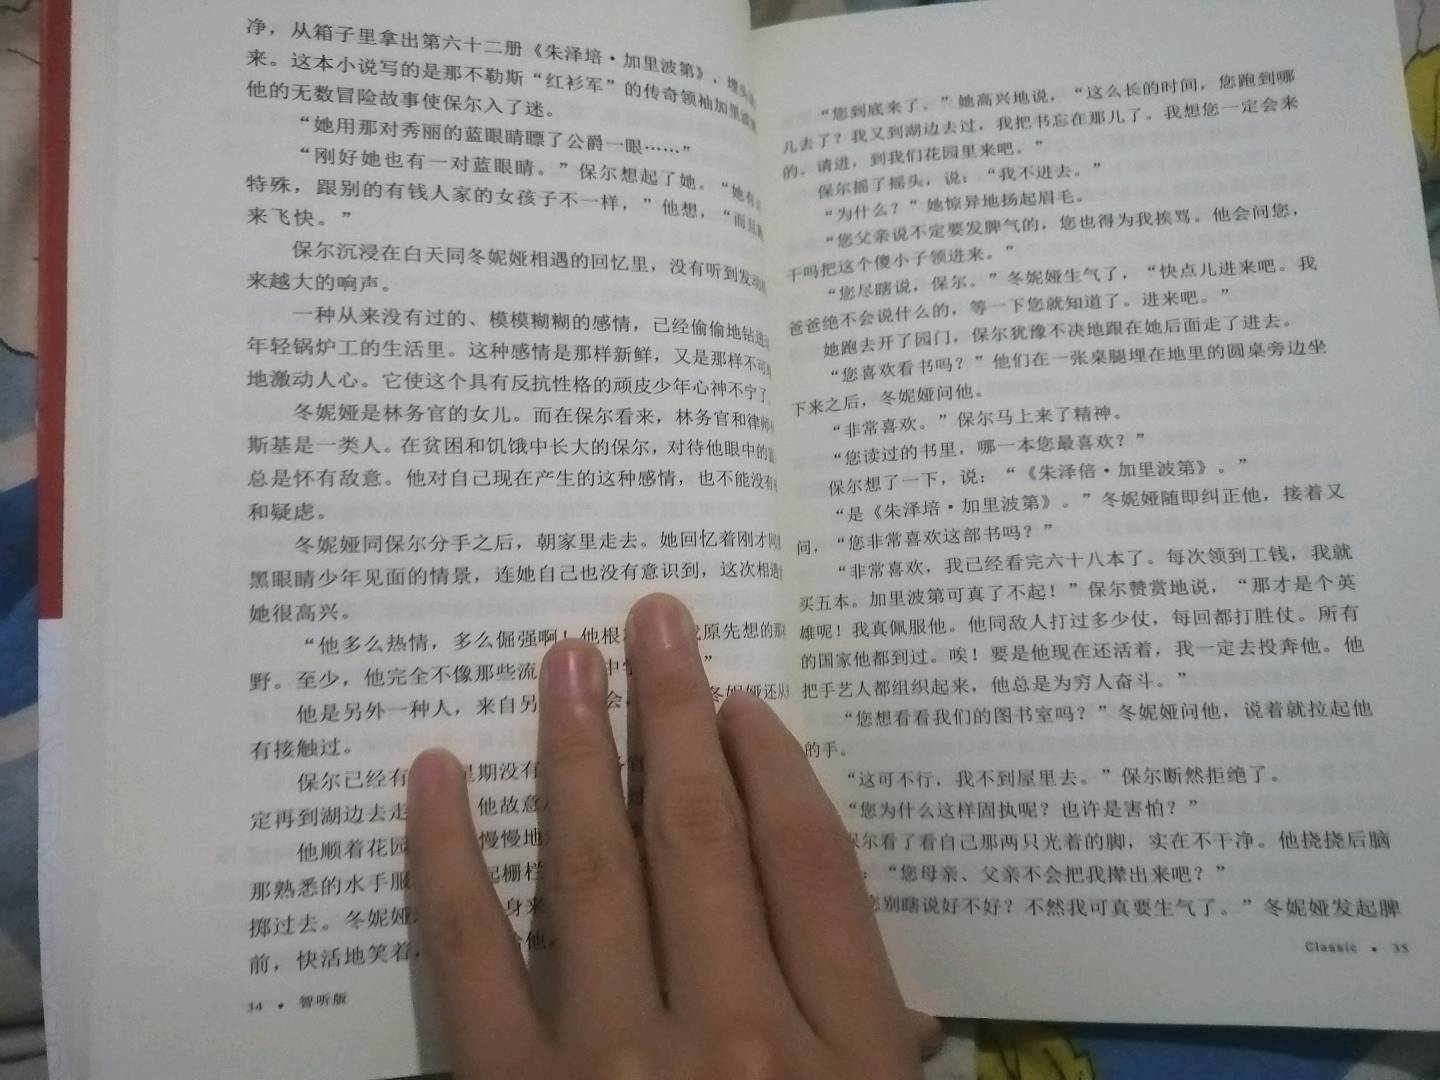 净，从箱子里拿出第六十二册《朱泽培·加里波第》，埋头
来。这本小说写的是那不勒斯“红衫军”的传奇领袖加里波
他的无数冒险故事使保尔入了迷。
“她用那对秀丽的蓝眼睛瞟了公爵一眼……”
“刚好她也有一对蓝眼睛。”保尔想起了她。“她有
特殊，跟别的有钱人家的女孩子不一样，”他想，“而且
来飞快。”
保尔沉浸在白天同冬妮娅相遇的回忆里，没有听到发动
来越大的响声。
一种从来没有过的、模模糊糊的感情，已经偷偷地钻进
年轻锅炉工的生活里。这种感情是那样新鲜，又是那样不可
地激动人心。它使这个具有反抗性格的顽皮少年心神不宁了
冬妮娅是林务官的女儿。而在保尔看来，林务官和律师
斯基是一类人。在贫困和饥饿中长大的保尔，对待他眼中的
总是怀有敌意。他对自己现在产生的这种感情，也不能没有
和疑虑。
冬妮娅同保尔分手之后，朝家里走去。她回忆着刚才同
黑眼睛少年见面的情景，连她自己也没有意识到，这次相遇
她很高兴。
“他多么热情，多么倔强啊！他根 原先想的那
野。至少，他完全不像那些流 中学 ”
他是另外一种人，来自另 会， 冬妮娅还从
有接触过。
保尔已经有 星期没有
定再到湖边去走 他故意
他顺着花园 慢慢地
那熟悉的水手服 起栅栏
掷过去。冬妮娅 身来
前，快活地笑着， 给他。
34 • 智听版
“您到底来了。”她高兴地说，“这么长的时间，您跑到哪
儿去了？我又到湖边去过，我把书忘在那儿了。我想您一定会来
的。请进，到我们花园里来吧。”
保尔摇了摇头，说：“我不进去。”
“为什么？”她惊异地扬起眉毛。
“您父亲说不定要发脾气的，您也得为我挨骂。他会问您，
干吗把这个傻小子领进来。”
“您尽瞎说，保尔。”冬妮娅生气了，“快点儿进来吧。我
爸爸绝不会说什么的，等一下您就知道了。进来吧。”
她跑去开了园门，保尔犹豫不决地跟在她后面走了进去。
“您喜欢看书吗？”他们在一张桌腿埋在地里的圆桌旁边坐
下来之后，冬妮娅问他。
“非常喜欢。”保尔马上来了精神。
“您读过的书里，哪一本您最喜欢？”
保尔想了一下，说：“《朱泽倍·加里波第》。”
“是《朱泽培·加里波第》。”冬妮娅随即纠正他，接着又
问，“您非常喜欢这部书吗？”
“非常喜欢，我已经看完六十八本了。每次领到工钱，我就
买五本。加里波第可真了不起！”保尔赞赏地说，“那才是个英
雄呢！我真佩服他。他同敌人打过多少仗，每回都打胜仗。所有
的国家他都到过。唉！要是他现在还活着，我一定去投奔他。他
把手艺人都组织起来，他总是为穷人奋斗。”
“您想看看我们的图书室吗？”冬妮娅问他，说着就拉起他
的手。
“这可不行，我不到屋里去。”保尔断然拒绝了。
“您为什么这样固执呢？也许是害怕？”
保尔看了看自己那两只光着的脚，实在不干净。他挠挠后脑
：“您母亲、父亲不会把我撵出来吧？”
您别瞎说好不好？不然我可真要生气了。”冬妮娅发起脾
Classic • 35